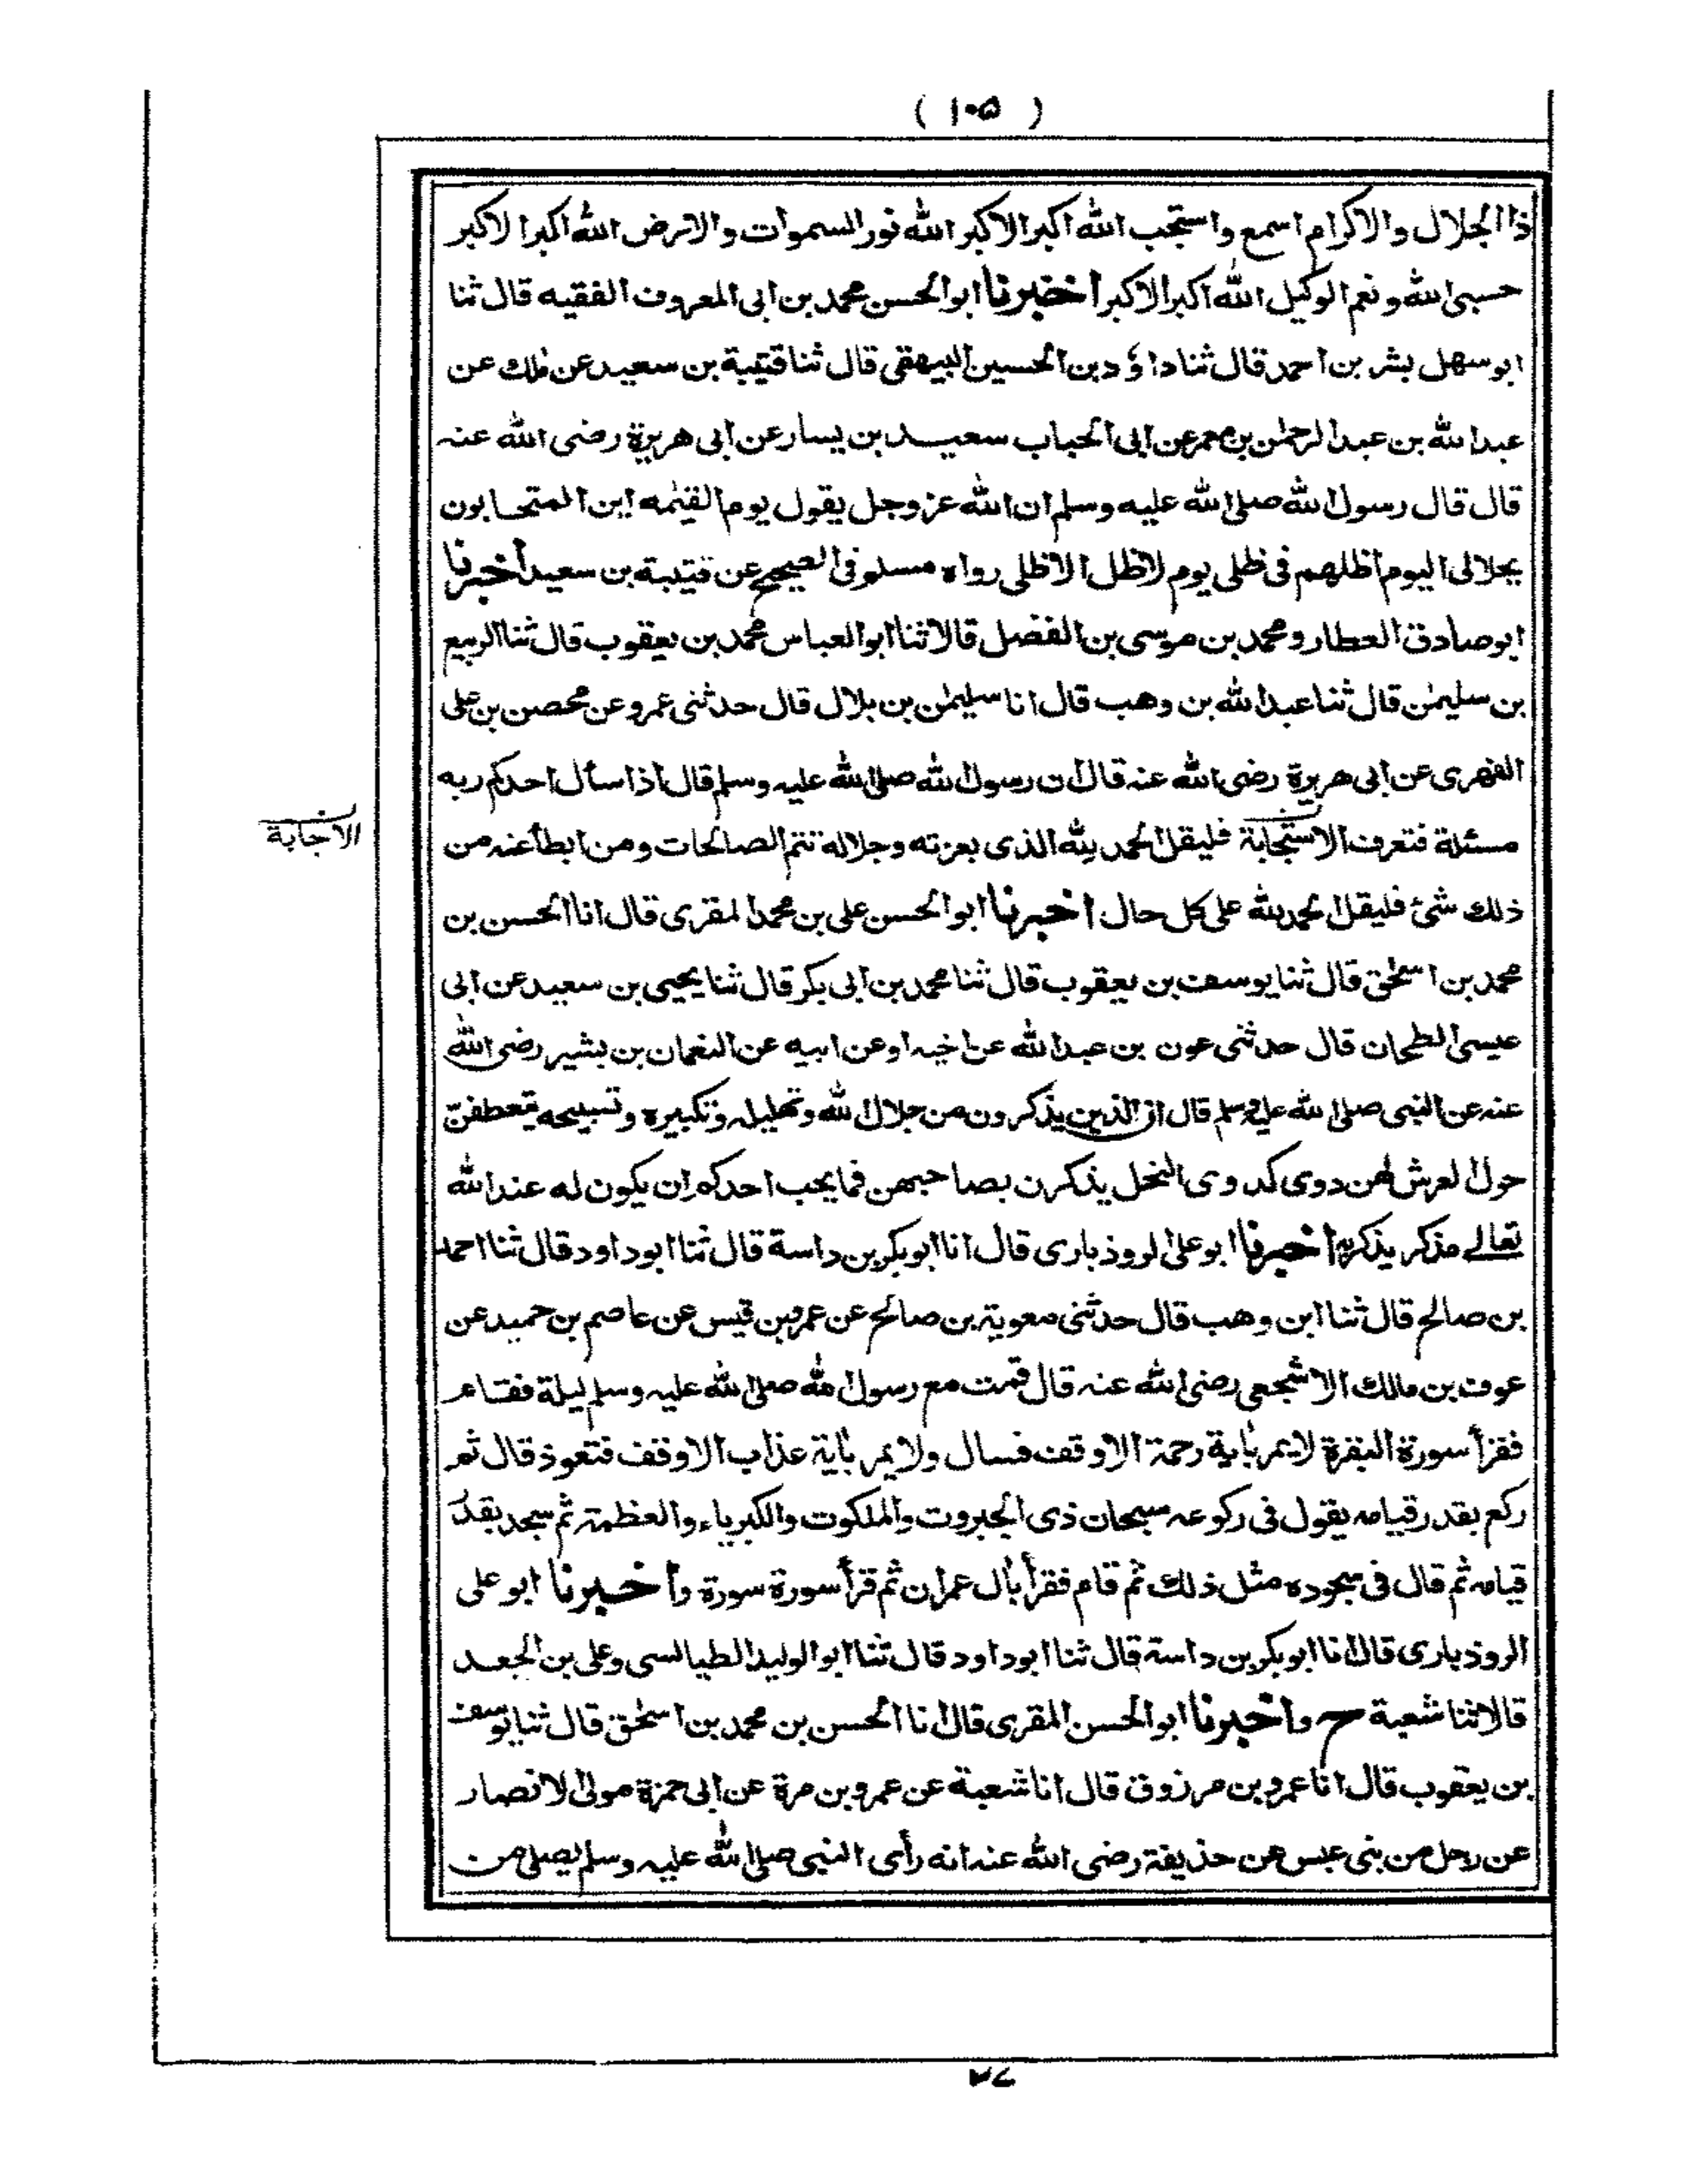 ( ١٠٥ )
ذا الجلال والاكرام اسمع واستجب الله اكبر الاكبر الله نور السموات والارض الله اكبر الاكبر
حسبى الله ونعم الوكيل الله اكبر الاكبر اخبرنا ابو الحسن محمد بن ابى المعروف الفقيه قال ثنا
ابو سهل بشر بن احمد قال ثنا داؤد بن الحسين البيهقى قال ثنا قتيبة بن سعيد عن مٰلك عن
عبد الله بن عبد الرحمٰن بن معمر عن ابى الحباب سعيد بن يسار عن ابى هريرة رضى الله عنه
قال قال رسول الله صلى الله عليه وسلم ان الله عز وجل يقول يوم القيٰمه اين المتحابون
بجلالى اليوم اظلهم فى ظلى يوم لا ظل الا ظلى رواه مسلم فى الصحيح عن قتيبة بن سعيد اخبرنا
ابو صادق العطار ومحمد بن موسى بن الفضل قالا ثنا ابو العباس محمد بن يعقوب قال ثنا الربيع
بن سليمٰن قال ثنا عبد الله بن وهب قال انا سليمٰن بن بلال قال حدثنى عمرو عن محصن بن على
الفهرى عن ابى هريرة رضى الله عنه قال ان رسول الله صلى الله عليه وسلم قال اذا سأل احدكم ربه
مسئلة فتعرف الاستجابة فليقل الحمد لله الذى بعزته وجلاله تتم الصالحات ومن ابطأ عنه من
الاجابة
ذلك شئ فليقل الحمد لله على كل حال اخبرنا ابو الحسن على بن محمد المقرى قال انا الحسن بن
محمد بن اسحٰق قال ثنا يوسف بن يعقوب قال ثنا محمد بن ابى بكر قال ثنا يحيى بن سعيد عن ابى
عيسى الطحان قال حدثنى عون بن عبد الله عن اخيه او عن ابيه عن النعمان بن بشير رضى الله
عنه عن النبى صلى الله عليه وسلم قال ان الذين يذكرون من جلال الله وتهليله وتكبيره وتسبيحه يتعطفن
حول العرش لهن دوى كدوى النحل يذكرن بصاحبهن فما يحب احدكم ان يكون له عند الله
تعالے مذكر يذكر به اخبرنا ابو على الروذبارى قال انا ابو بكر بن داسة قال ثنا ابو داود قال ثنا احمد
بن صالح قال ثنا ابن وهب قال حدثنى معوية بن صالح عن عمرو بن قيس عن عاصم بن حميد عن
عوف بن مالك الاشجعى رضى الله عنه قال قمت مع رسول الله صلى الله عليه وسلم ليلة فقام
فقرأ سورة البقرة لا يمر بأية رحمة الا وقف فسال ولا يمر بأية عذاب الا وقف فتعوذ قال ثم
ركع بقدر قيامه يقول فى ركوعه سبحان ذى الجبروت والملكوت والكبرياء والعظمة ثم سجد بقدر
قيامه ثم قال فى سجوده مثل ذلك ثم قام فقرأ بأل عمران ثم قرأ سورة سورة واخبرنا ابو على
الروذبارى قال انا ابو بكر بن داسة قال ثنا ابو داود قال ثنا ابو الوليد الطيالسى وعلى بن الجعد
قالا ثنا شعبة ح واخبرنا ابو الحسن المقرى قال انا الحسن بن محمد بن اسحٰق قال ثنا يوسف
بن يعقوب قال انا عمرو بن مرزوق قال انا شعبة عن عمرو بن مرة عن ابى حمزة مولى الانصار
عن رجل من بنى عبس عن حذيفة رضى الله عنه انه رأى النبى صلى الله عليه وسلم يصلى من